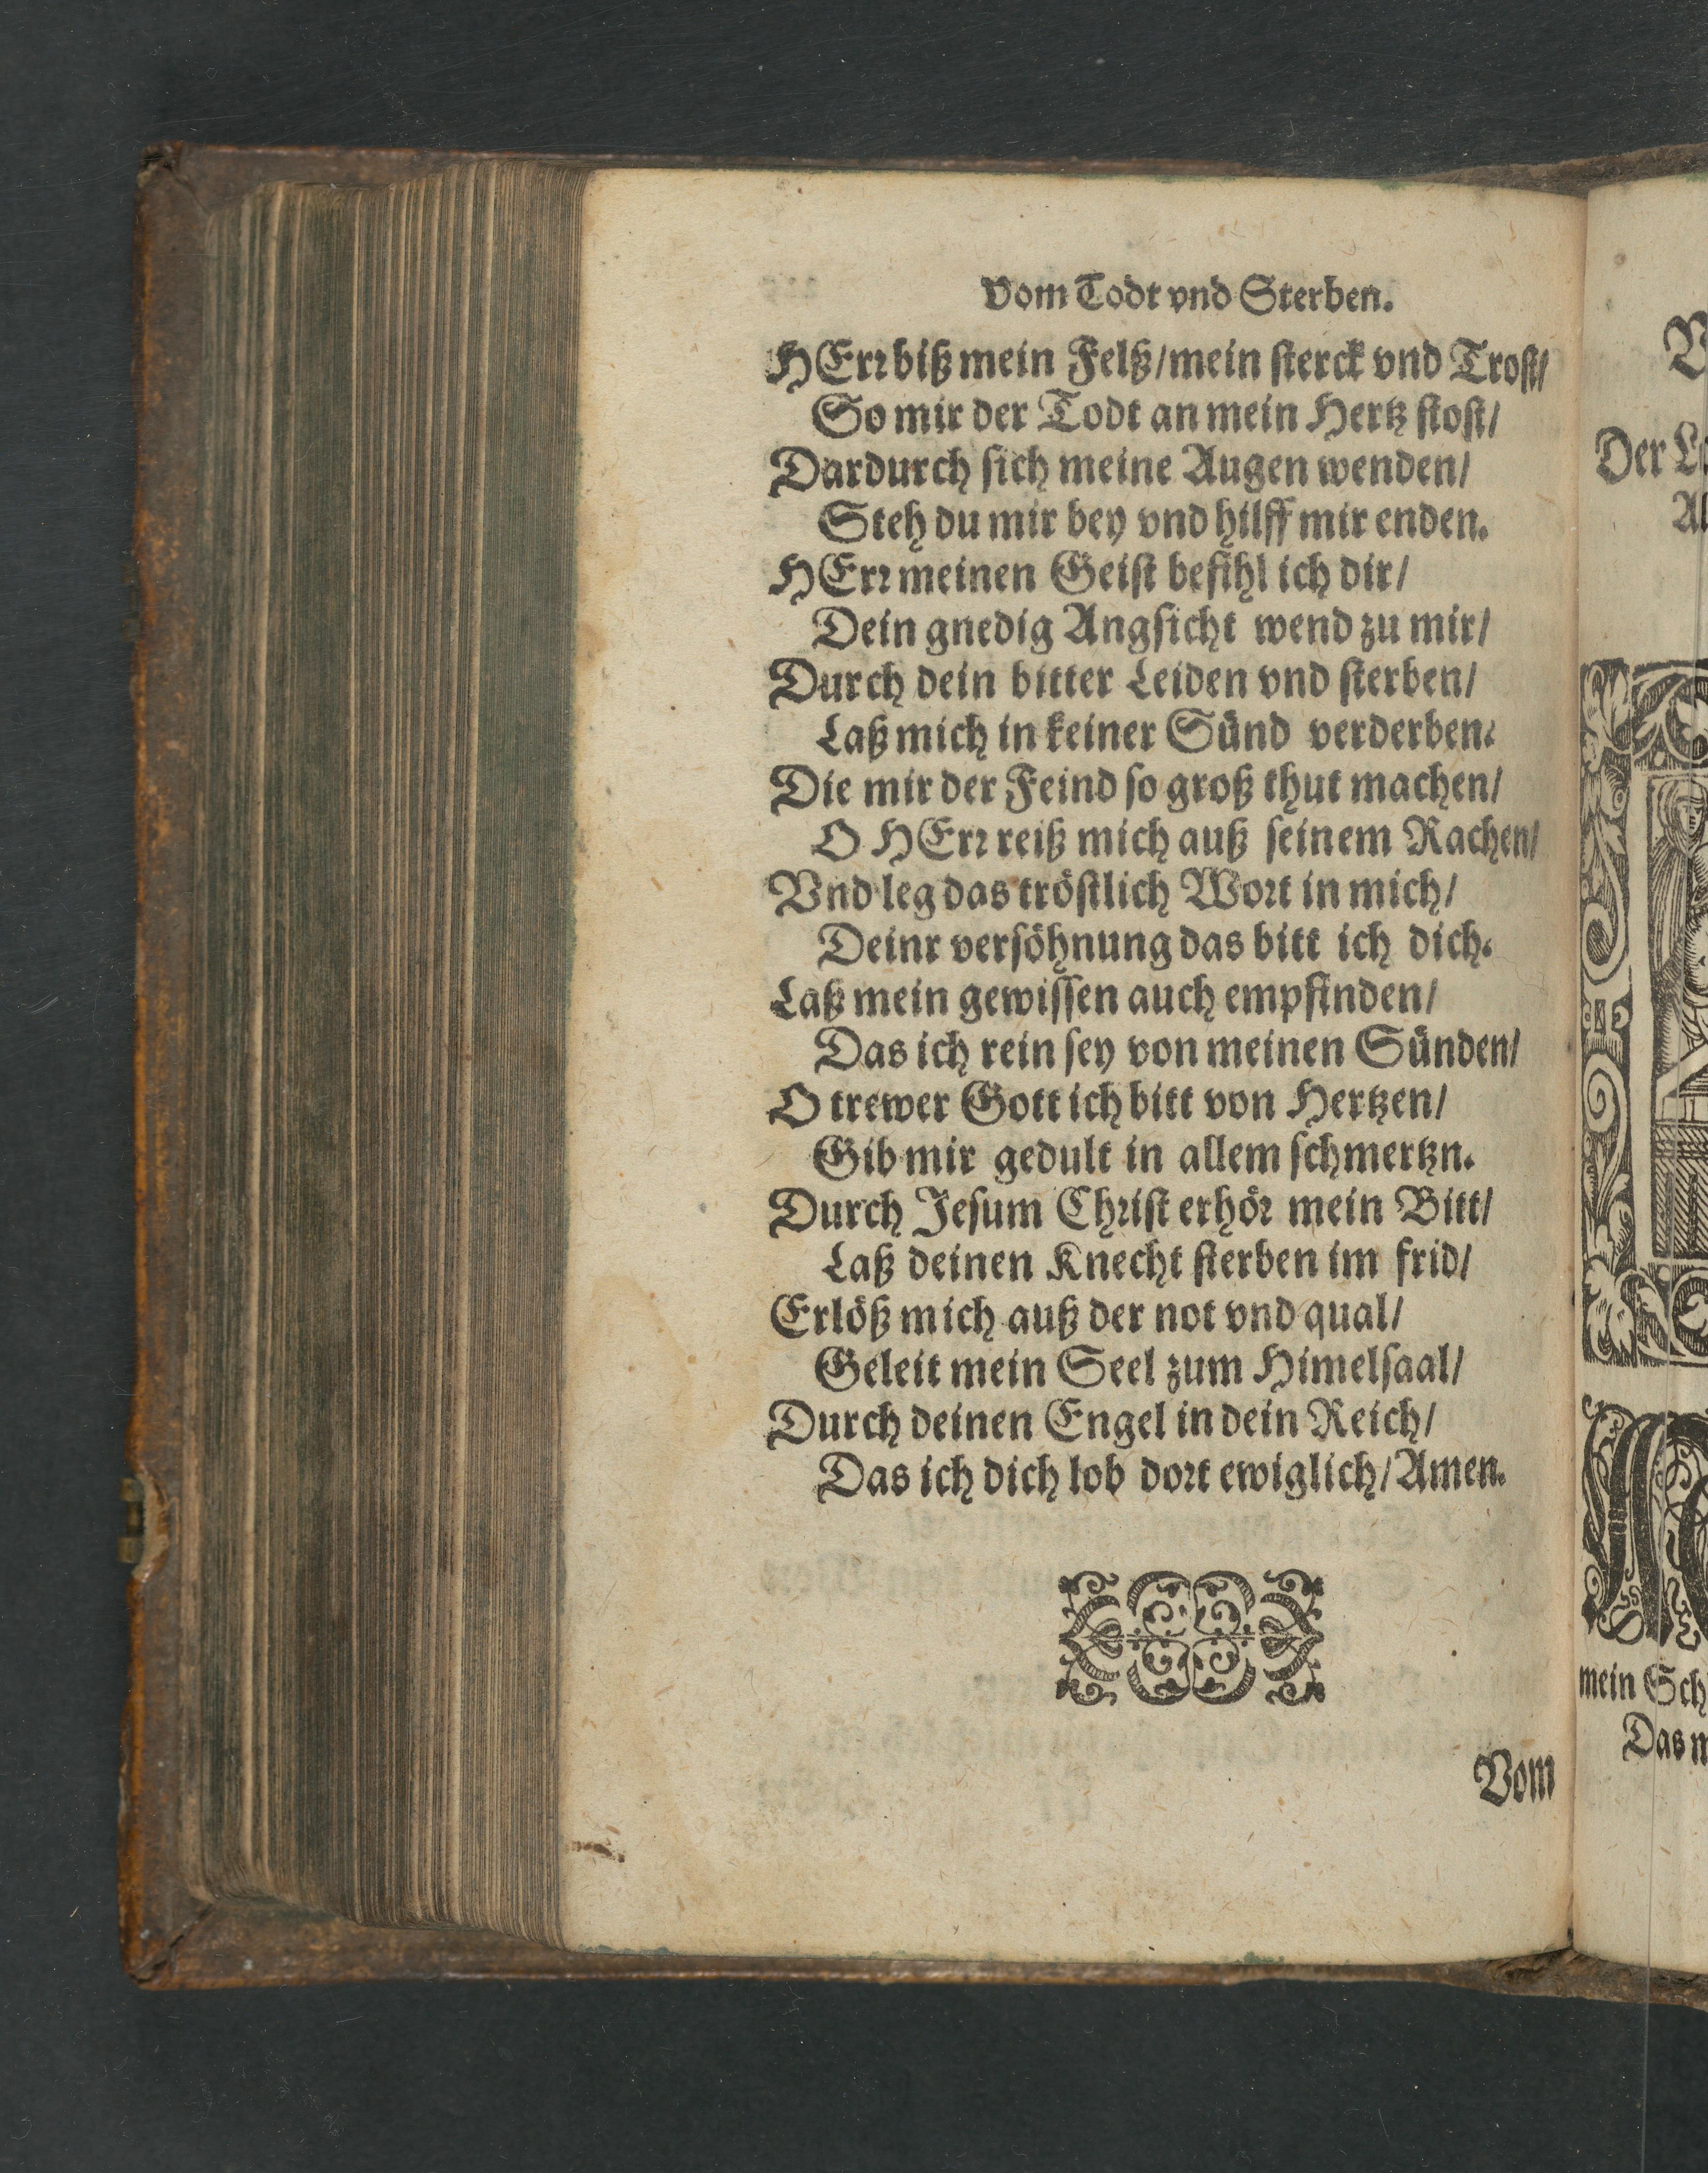 Vom Todt vnd Sterben.
HErr biß mein Felß/mein sterck vnd Trost/
So mir der Todt an mein Hertz stost/
Dardurch sich meine Augen wenden/
Steh du mir bey vnd hilff mir enden.
HErr meinen Geist befihl ich dir/
Dein gnedig Angsicht wend zu mir/
Durch dein bitter Leiden vnd sterben/
Laß mich in keiner Sünd verderben.
Die mir der Feind so groß thut machen/
O HErr reiß mich auß seinem Rachen/
Vnd leg das tröstlich Wort in mich/
Deinr versöhnung das bitt ich dich.
Laß mein gewissen auch empfinden/
Das ich rein sey von meinen Sünden/
O trewer Gott ich bitt von Hertzen/
Gib mir gedult in allem schmertzn.
Durch Jesum Christ erhör mein Bitt/
Laß deinen Knecht sterben im frid/
Erlöß mich auß der not vnd qual/
Geleit mein Seel zum Himelsaal/
Durch deinen Engel in dein Reich/
Das ich dich lob dort ewiglich/Amen.
Vom
Der
mein Sch
Das